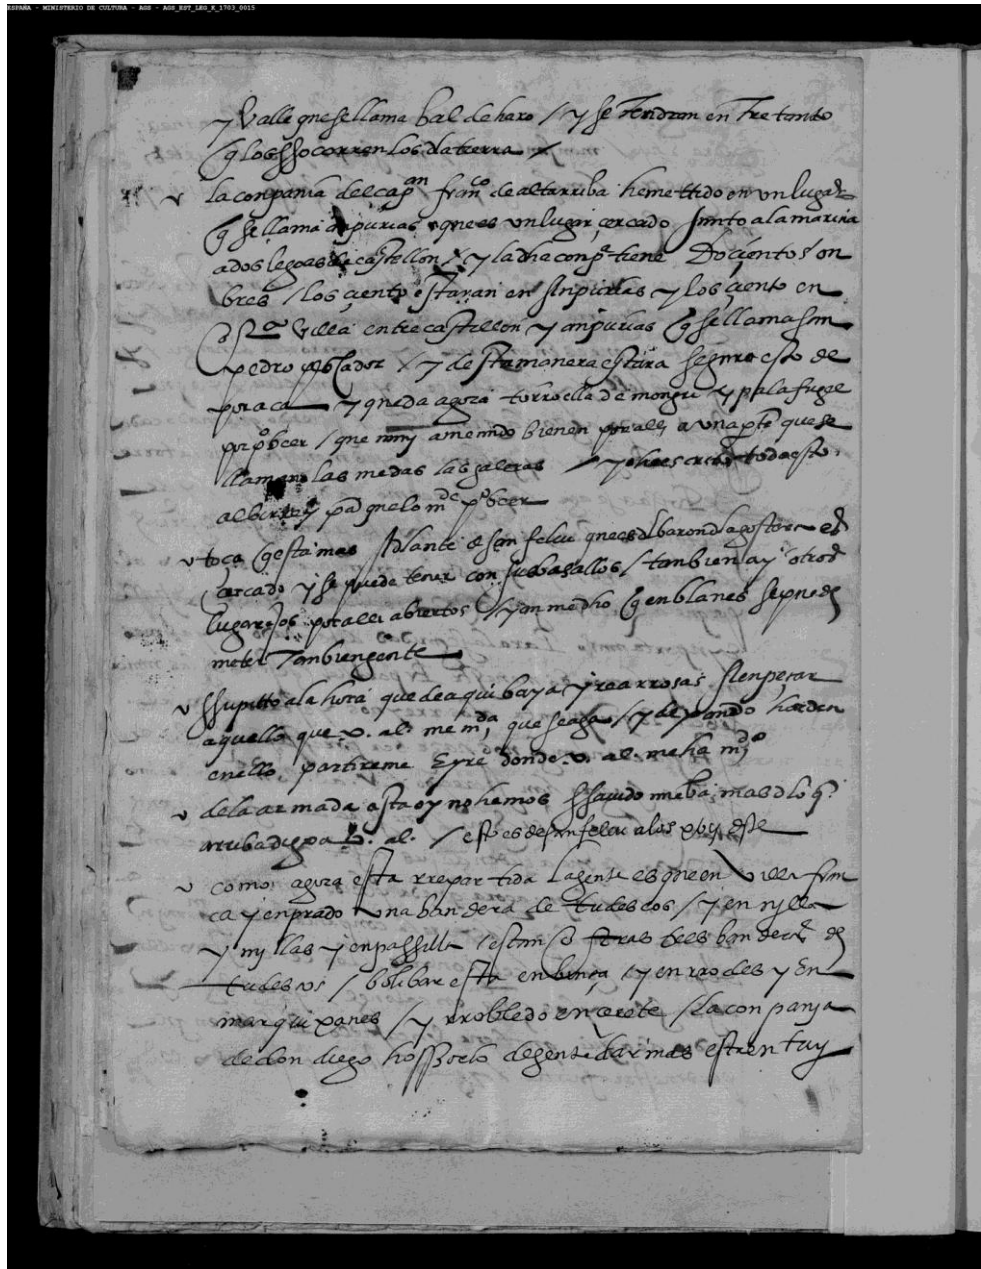 ESPAÑA - MINISTERIO DE CULTURA - AGS - AGS_EST_LEG_K_1703_0015
y Valle que se llama bal de haro / y se tendran en tretanto
q los ssocorren los dla tierra
la conpania del capan franco de altarriba he mettido en un lugar
q se llama anpurias que es un lugar çercado junto a la marina
a dos legoas de castellon / y la dha conpa tiene Doçientos on
bres / los çiento estaran en Anpurias y los çiento en
otra villa entre castillon y anpurias q se llama san
pedro pescador / y de sta manera estara seguro esto de
por aca y queda agora torroella de mongri y palafugel
por pobeer / que muy a menudo bienen por alli a una pte que se
llaman las medas las galeras / yo he escrito todo esto
al birrey pa que lo mde pobeer
toça q esta mas Adlante de san feliu que es dl baron d lagostera es
çercado y se puede tener con sus basallos / tambien ay otros
lugarejos por alli abiertos / y an me dho q en blanes se puede
meter tanbien gente
ssupitto a la hora que de aqui baya yre a rrosas A enpeçar
aquello que v. al. me mda que se aga / y dexando horden
en ello partireme E yre donde v. al. me ha mdo
de la armada asta oy no hemos ssavido nueba mas d lo q
arriba digo a V. al. / esto es de san feliu a los xbij deste
como agora esta rrepartida la gente es que en Villa fran
ca y en prado una bandera de tudescos / y en rylla
y nyllas y en passilla estan otras tres banderas de
tudescos / bolibar esta en binça / y en rrodes y En
marquixanes / y rrobledo en çerete / la conpanja
de don diego hossorio de gente darmas esta en tuy